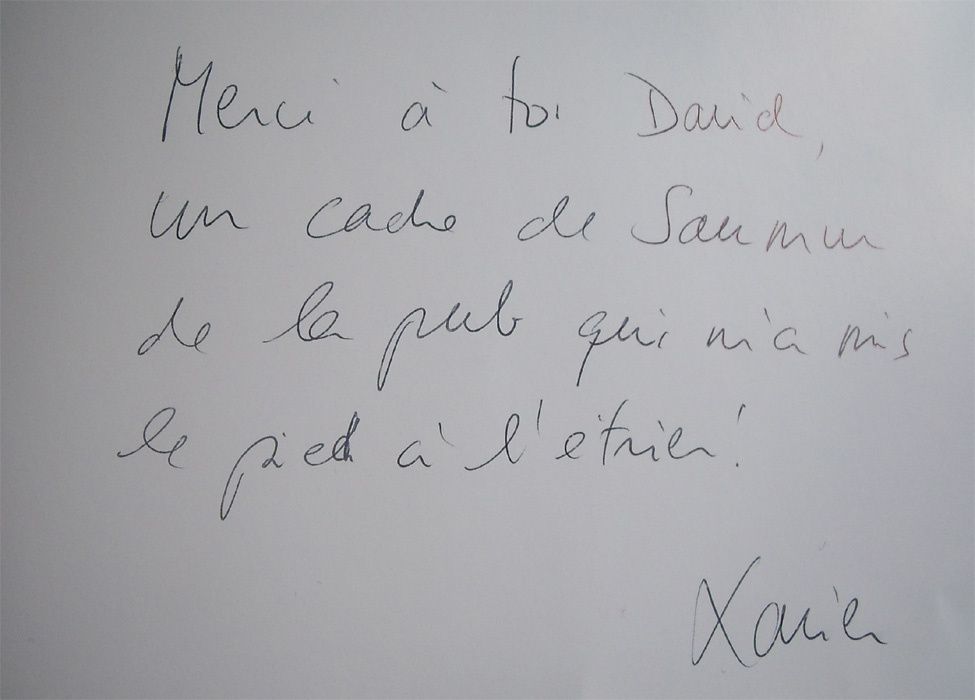 Merci à toi David,
un cadre de Saumur
de la pub qui m'a mis
le pied à l'étrier!
Xavier